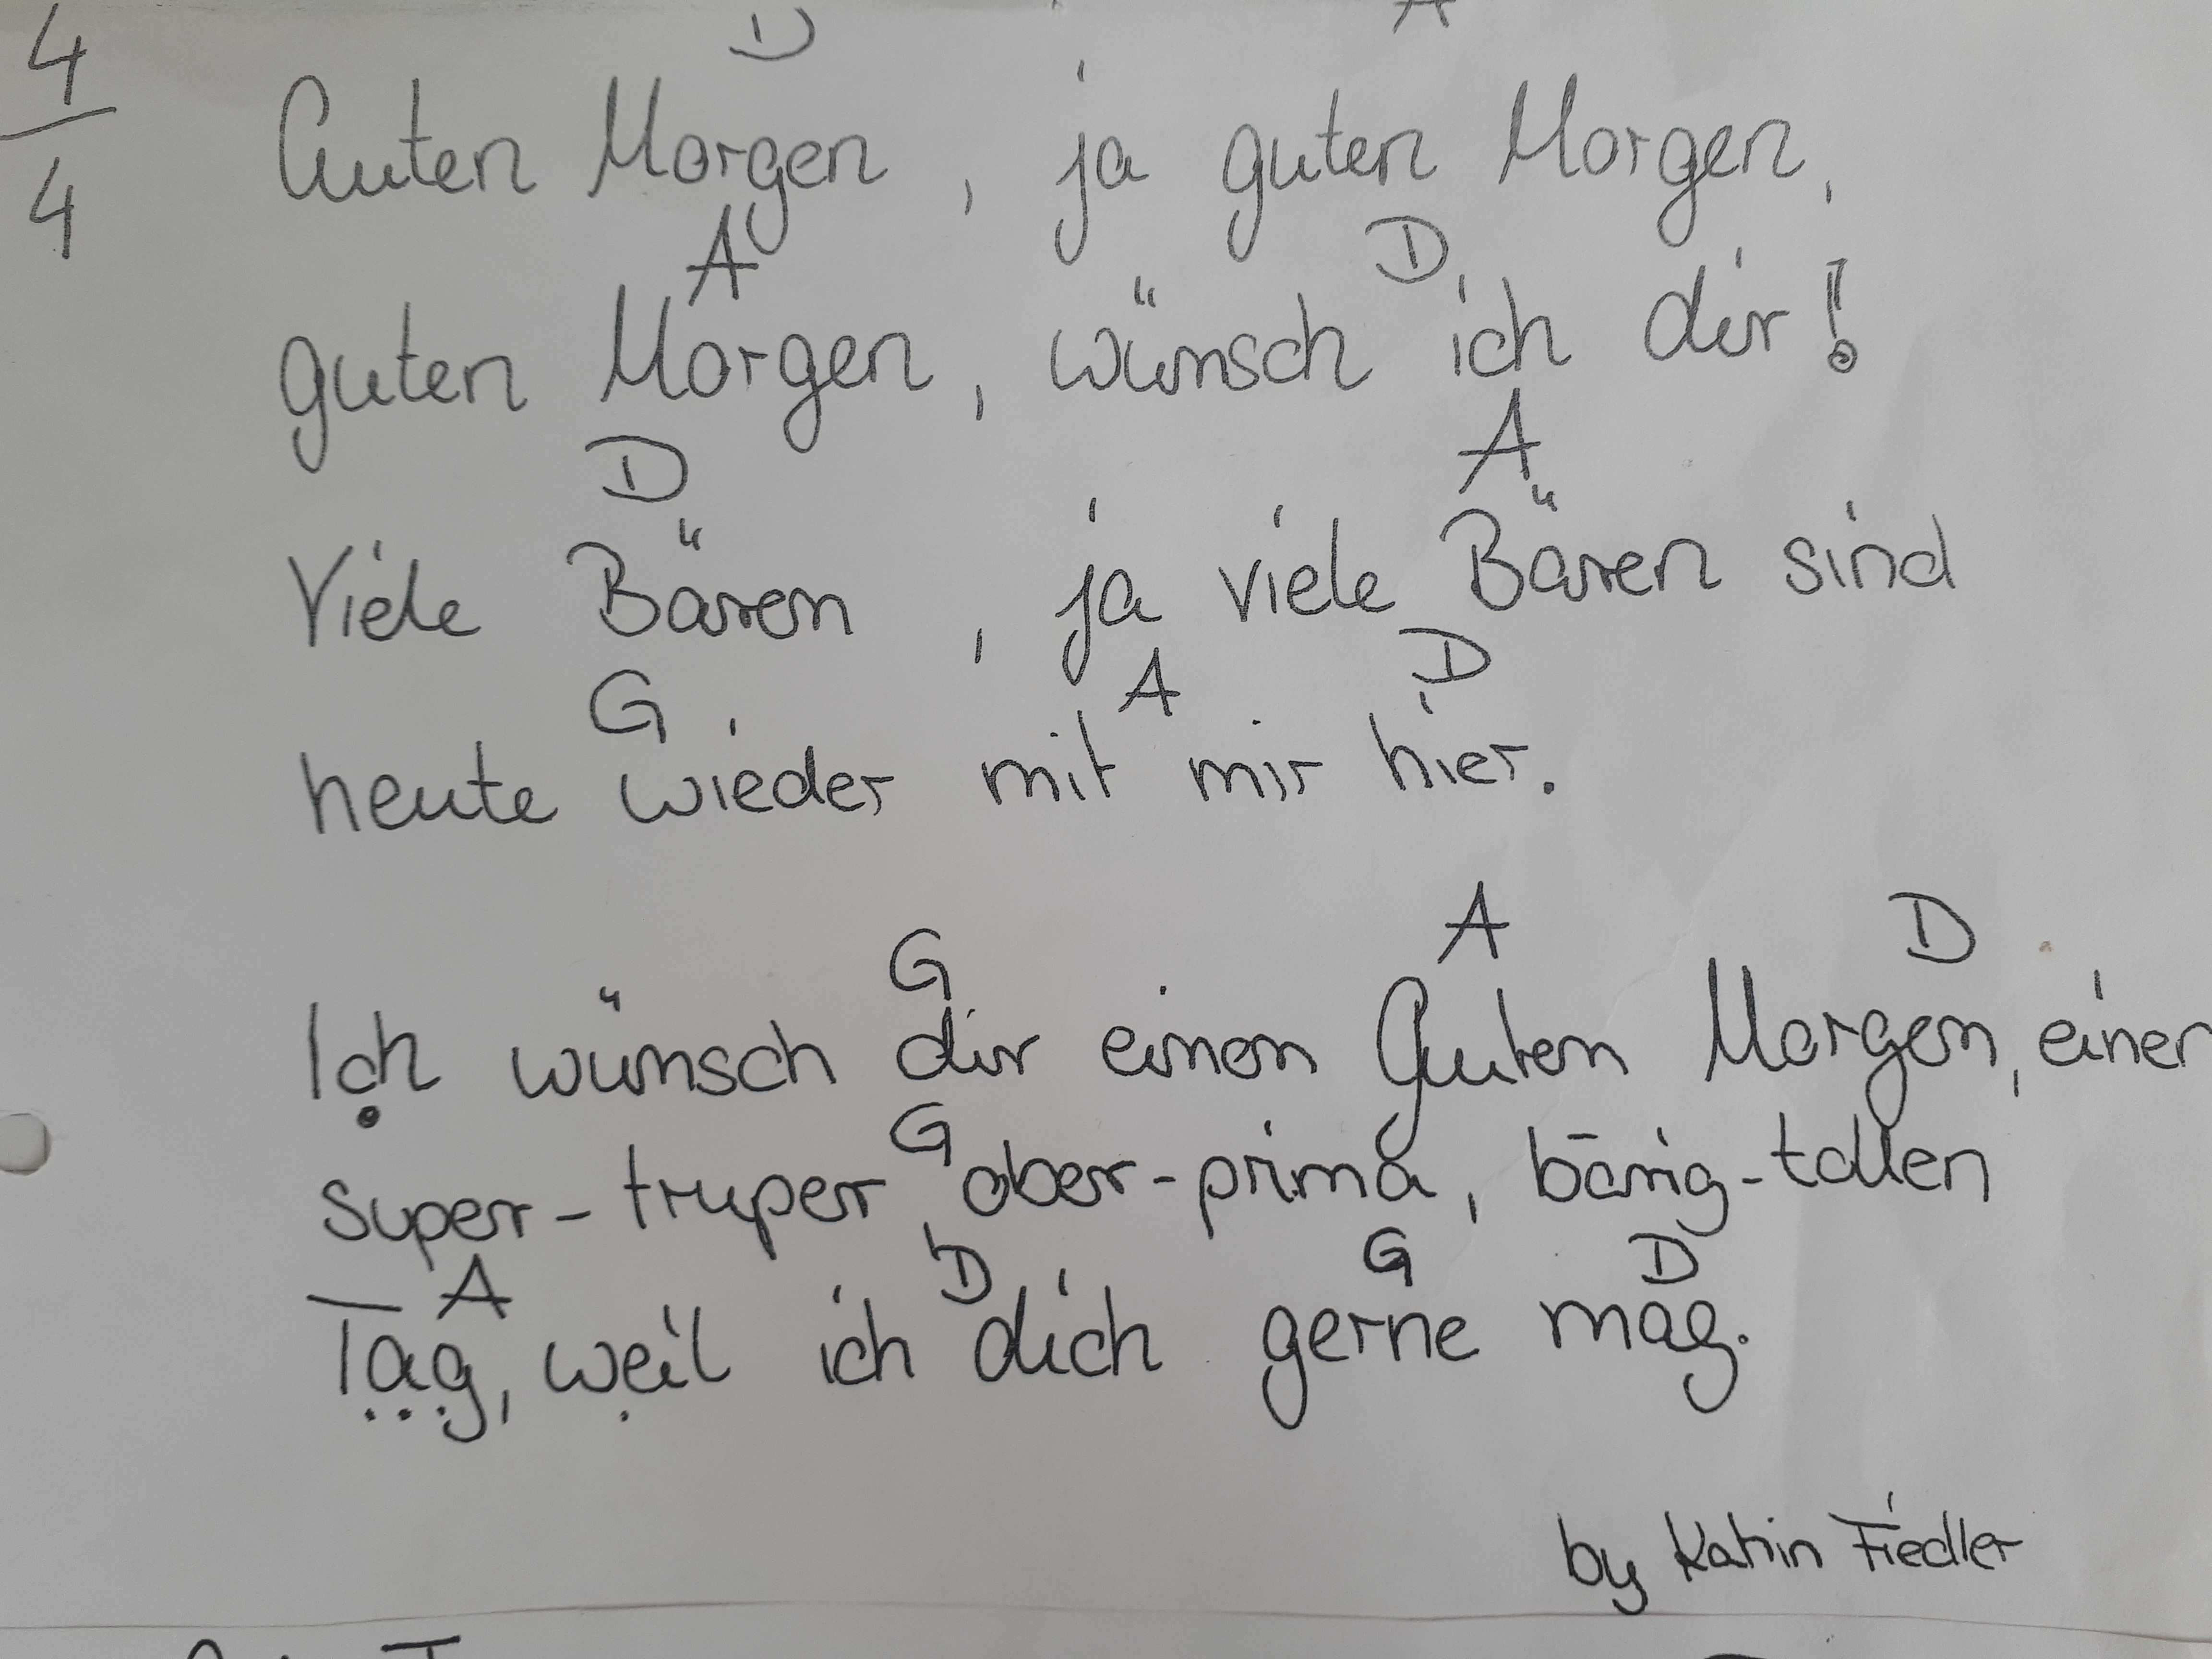 4/4
D A
Guten Morgen, ja guten Morgen,
A D
guten Morgen, wünsch ich dir!
D A
Viele Bären, ja viele Bären sind
G A D
heute wieder mit mir hier.
G A D
Ich wünsch dir einen Guten Morgen, einen
G
super-truper, ober-prima, bärig-tollen
A D G D
Tag, weil ich dich gerne mag.
by Katrin Fiedler